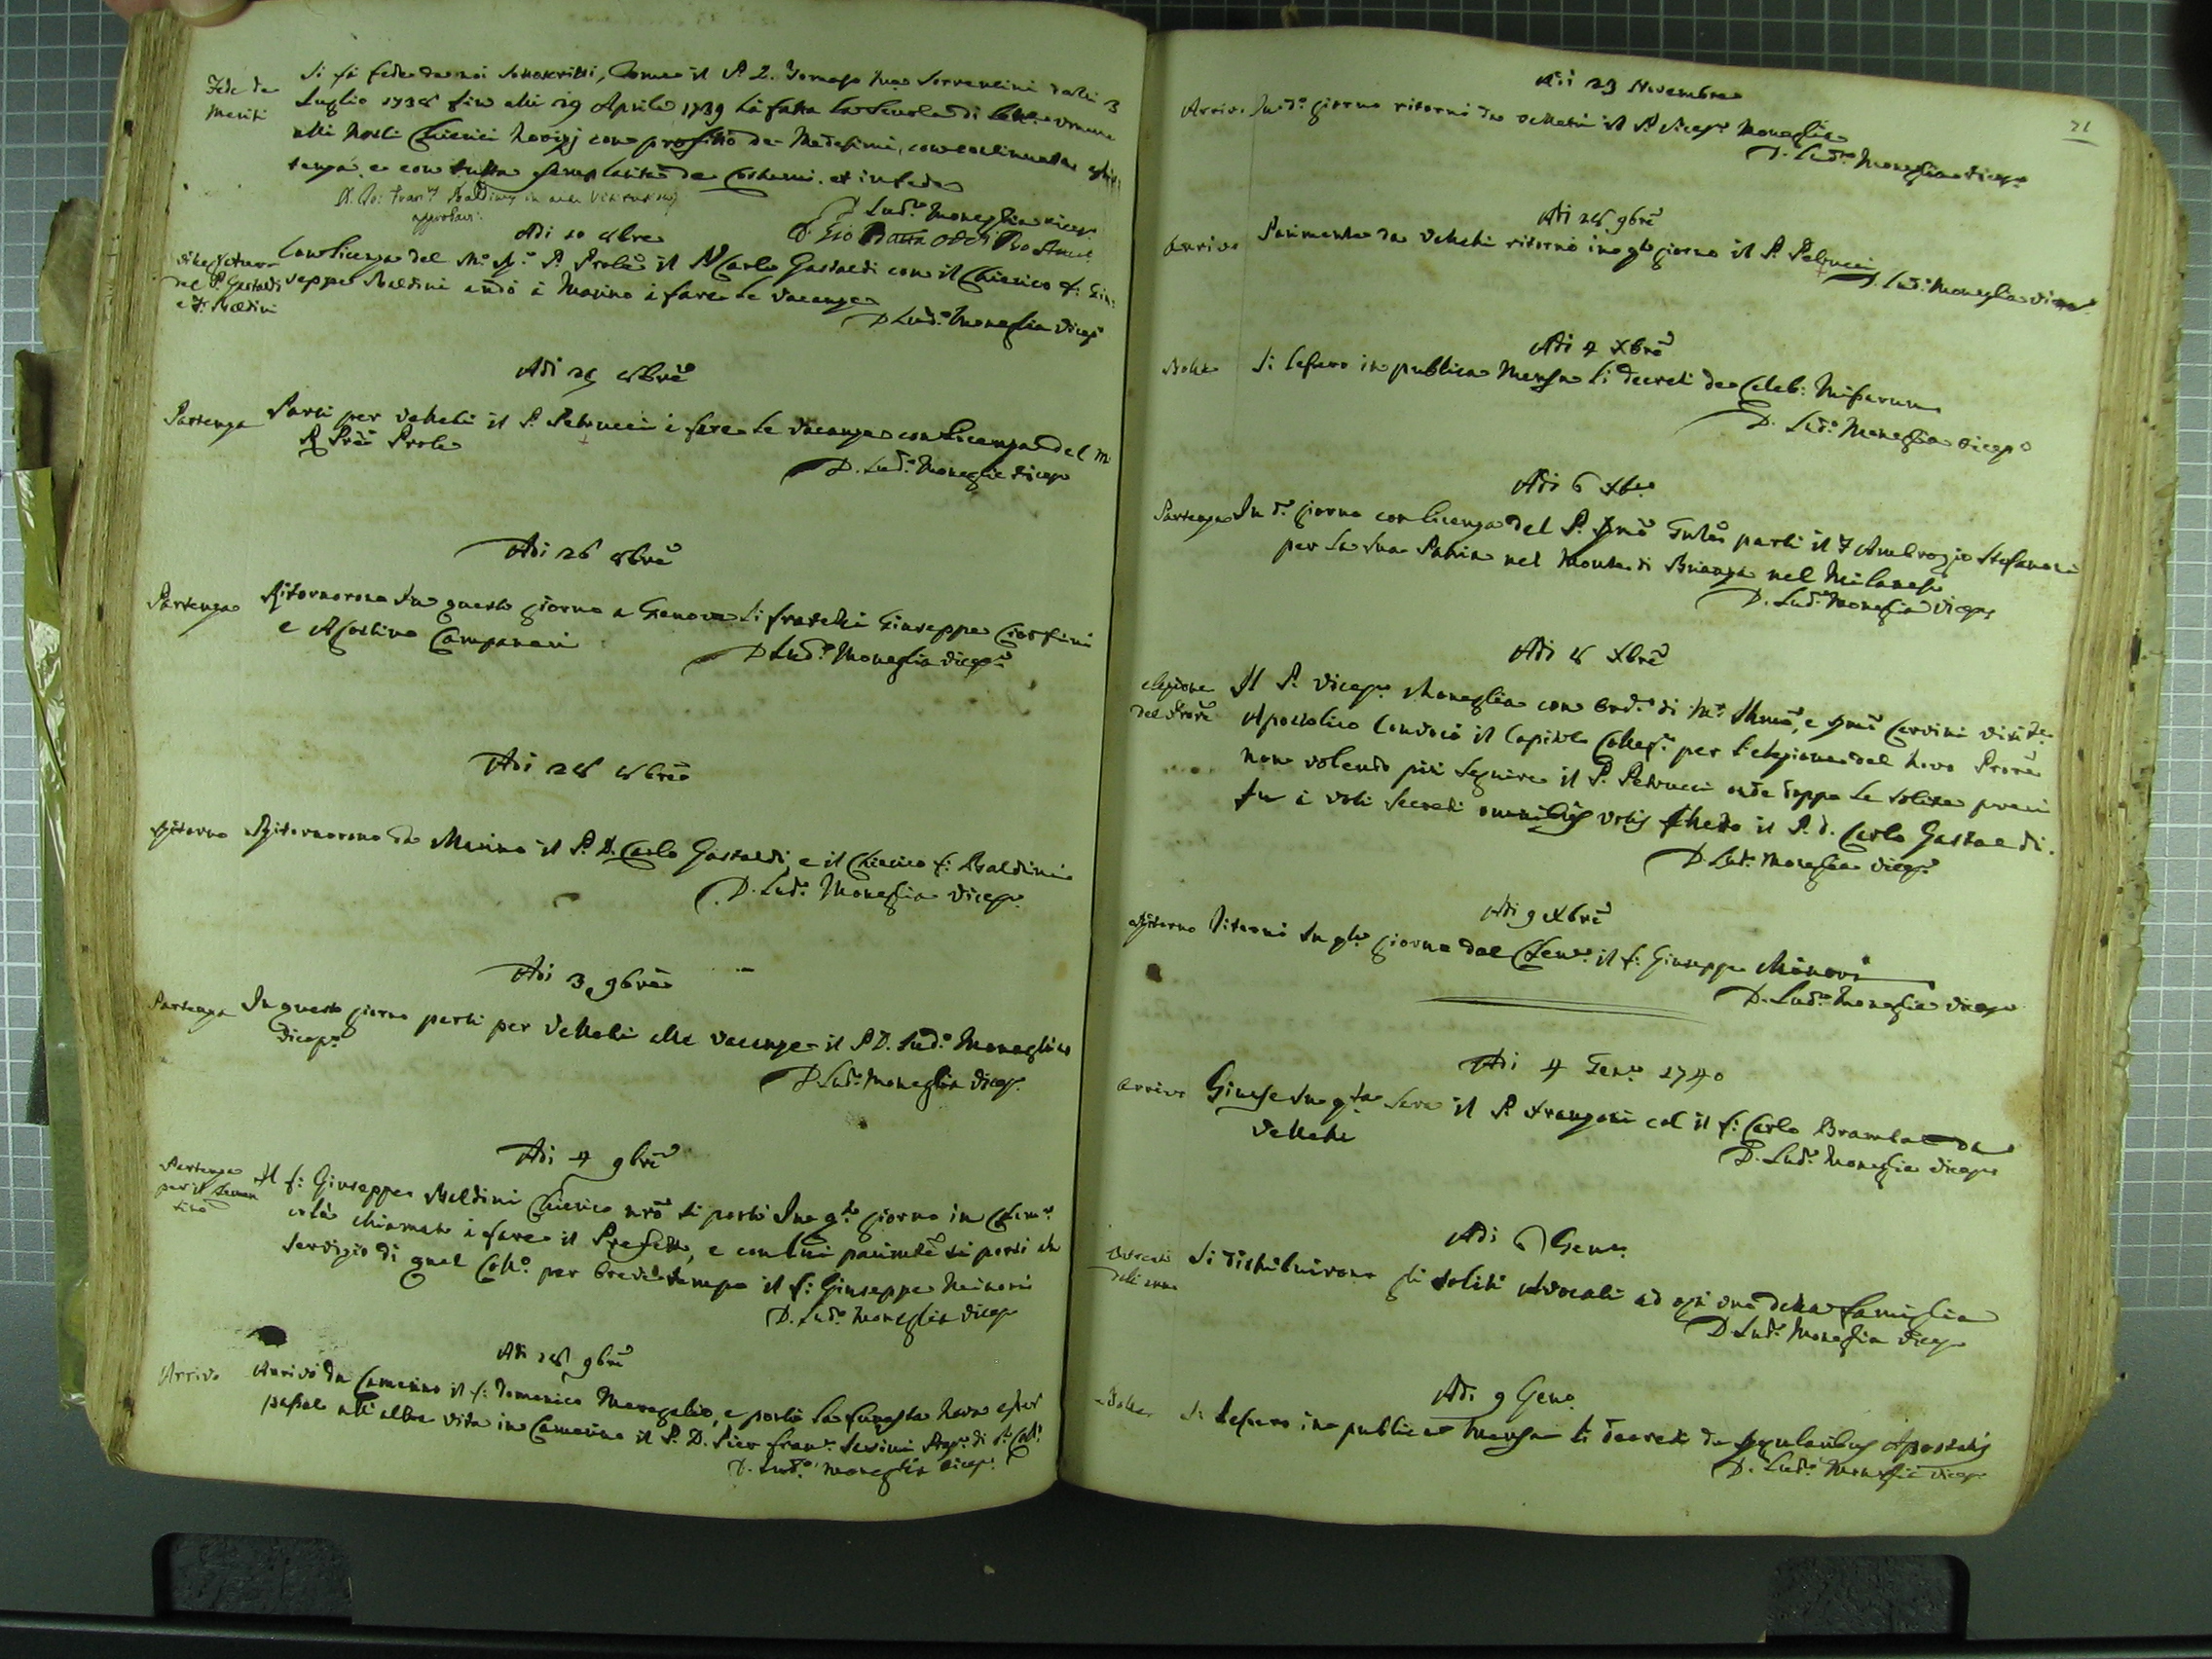 Fede de
Meriti
Si fà fede da noi sottoscritti, Come il P. D. Tomaso Sorrentini dalli 3
Luglio 1738 sin alli 29 Aprile 1739 hà fatta la Scuola di
alli Nostri Chierici Novizj con profitto de Medesimi, con continuata
tenza, e con tutta esemplarità de Costumi. et in fede
D. Lud.o Moneglia Vicep.
approbavi.
D. Gio Batta Odcì
Adi 10 8bre
del P. Gastaldi
e F. Baldini
Con licenza del M.o R.o P. Prole il P. Carlo Gastaldi con il Chierico F: Giu:
seppe Baldini andò à Marino à fare le vacanze
D Lud.o Moneglia Vicep.
Adi 25 8bre
Partenza
Partì per Velletri il P. Petrucci à fare le vacanze con licenza del M
R Pre Prole
D. Lud.o Moneglia Vicep.
Adi 26 8bre
Partenza
Ritornorono In questo giorno a Genova li fratelli Giuseppe
e Agostino Campanari
D Lud.o Moneglia Vicep.
Adi 28 8bre
Ritorno
Ritornorono da Marino il P. D. Carlo Gastaldi, e il Chierico f: Baldini
D. Lud.o Moneglia Vicep.
Adi 3 9bre
Partenza
In questo giorno partì per Velletri alle vacanze il P D. Lud.o Moneglia
Vicep.o
D. Lud.o Moneglia Vicep.
Adi 4 9bre
Partenza
per il Clemen
tino
Il f: Giuseppe Baldini Chierico nrõ si portò In q.to giorno in Clem.o
colà chiamato à fare il Prefetto, e con lui parimte si portò in
servizio di quel Coll.o per breve tempo il f: Giuseppe Minori
D. Lud.o Moneglia Vicep.
Adi 18 9bre
Arrivo
Arrivò da Camerino il f: Domenico Maregalio, e portò la funesta nova esser
passato all'altra vita in Camerino il P. D. Pier Fran.o Sersini Prep.o di q.to Coll.
D. Lud.o Moneglia Vicep.
21
Adi 23 Novembre
Arrivo
In d.o giorno ritornò da Velletri il P. Vicep.o Moneglia
D. Lud.o Moneglia Vicep.
Adi 28 9bre
Arrivo
Parimente da Velletri ritornò in q.to giorno il P. Petrucci
D. Lud.o Moneglia Vicep.
Adi 4 Xbre
Bolle
Si lessero in publica Mensa li decreti de Celeb: Missarum
D. Lud.o Moneglia Vicep.o
Adi 6 Xbre
Partenza
In d.o giorno con licenza del P. partì il F Ambrogio Stefanoni
per la sua Patria nel Monte di Brianza nel Milanese
D. Lud.o Moneglia Vicep.
Adi 8 Xbre
elezione
del Prore
Il P. Vicep.o Moneglia con ord.e di M.r Illmo, e Rmo Cervini Visit.re
Apostolico Convocò il Capitolo Colleg.e per l'elezione del novo Prore
non volendo più seguire il P. Petrucci onde doppo le solite preci
fu à voti secreti omnibus votis eletto il P. D. Carlo Gastaldi.
D. Lud.o Moneglia Vicep.
Adi 9 Xbre
Ritorno
Ritornò In q.to giorno dal Clem.o il f: Giuseppe Minori
D. Lud.o Moneglia Vicep.
Adi 4 Gen.o 1740
Arrivo
Giunse In q.ta Sera il P. Franzoni col il f: Carlo Brambaldi da
Velletri
D. Lud.o Moneglia Vicep.
Adi 6 Gen.o
Avocati
dell anno
Si distribuirono gli soliti Avocati ad ogn uno della famiglia
D. Lud.o Moneglia Vicep.
Adi 9 Gen.o
Bolle
Si lessero in publica Mensa li decreti de Regularibus Apostatis
D. Lud.o Moneglia Vicep.